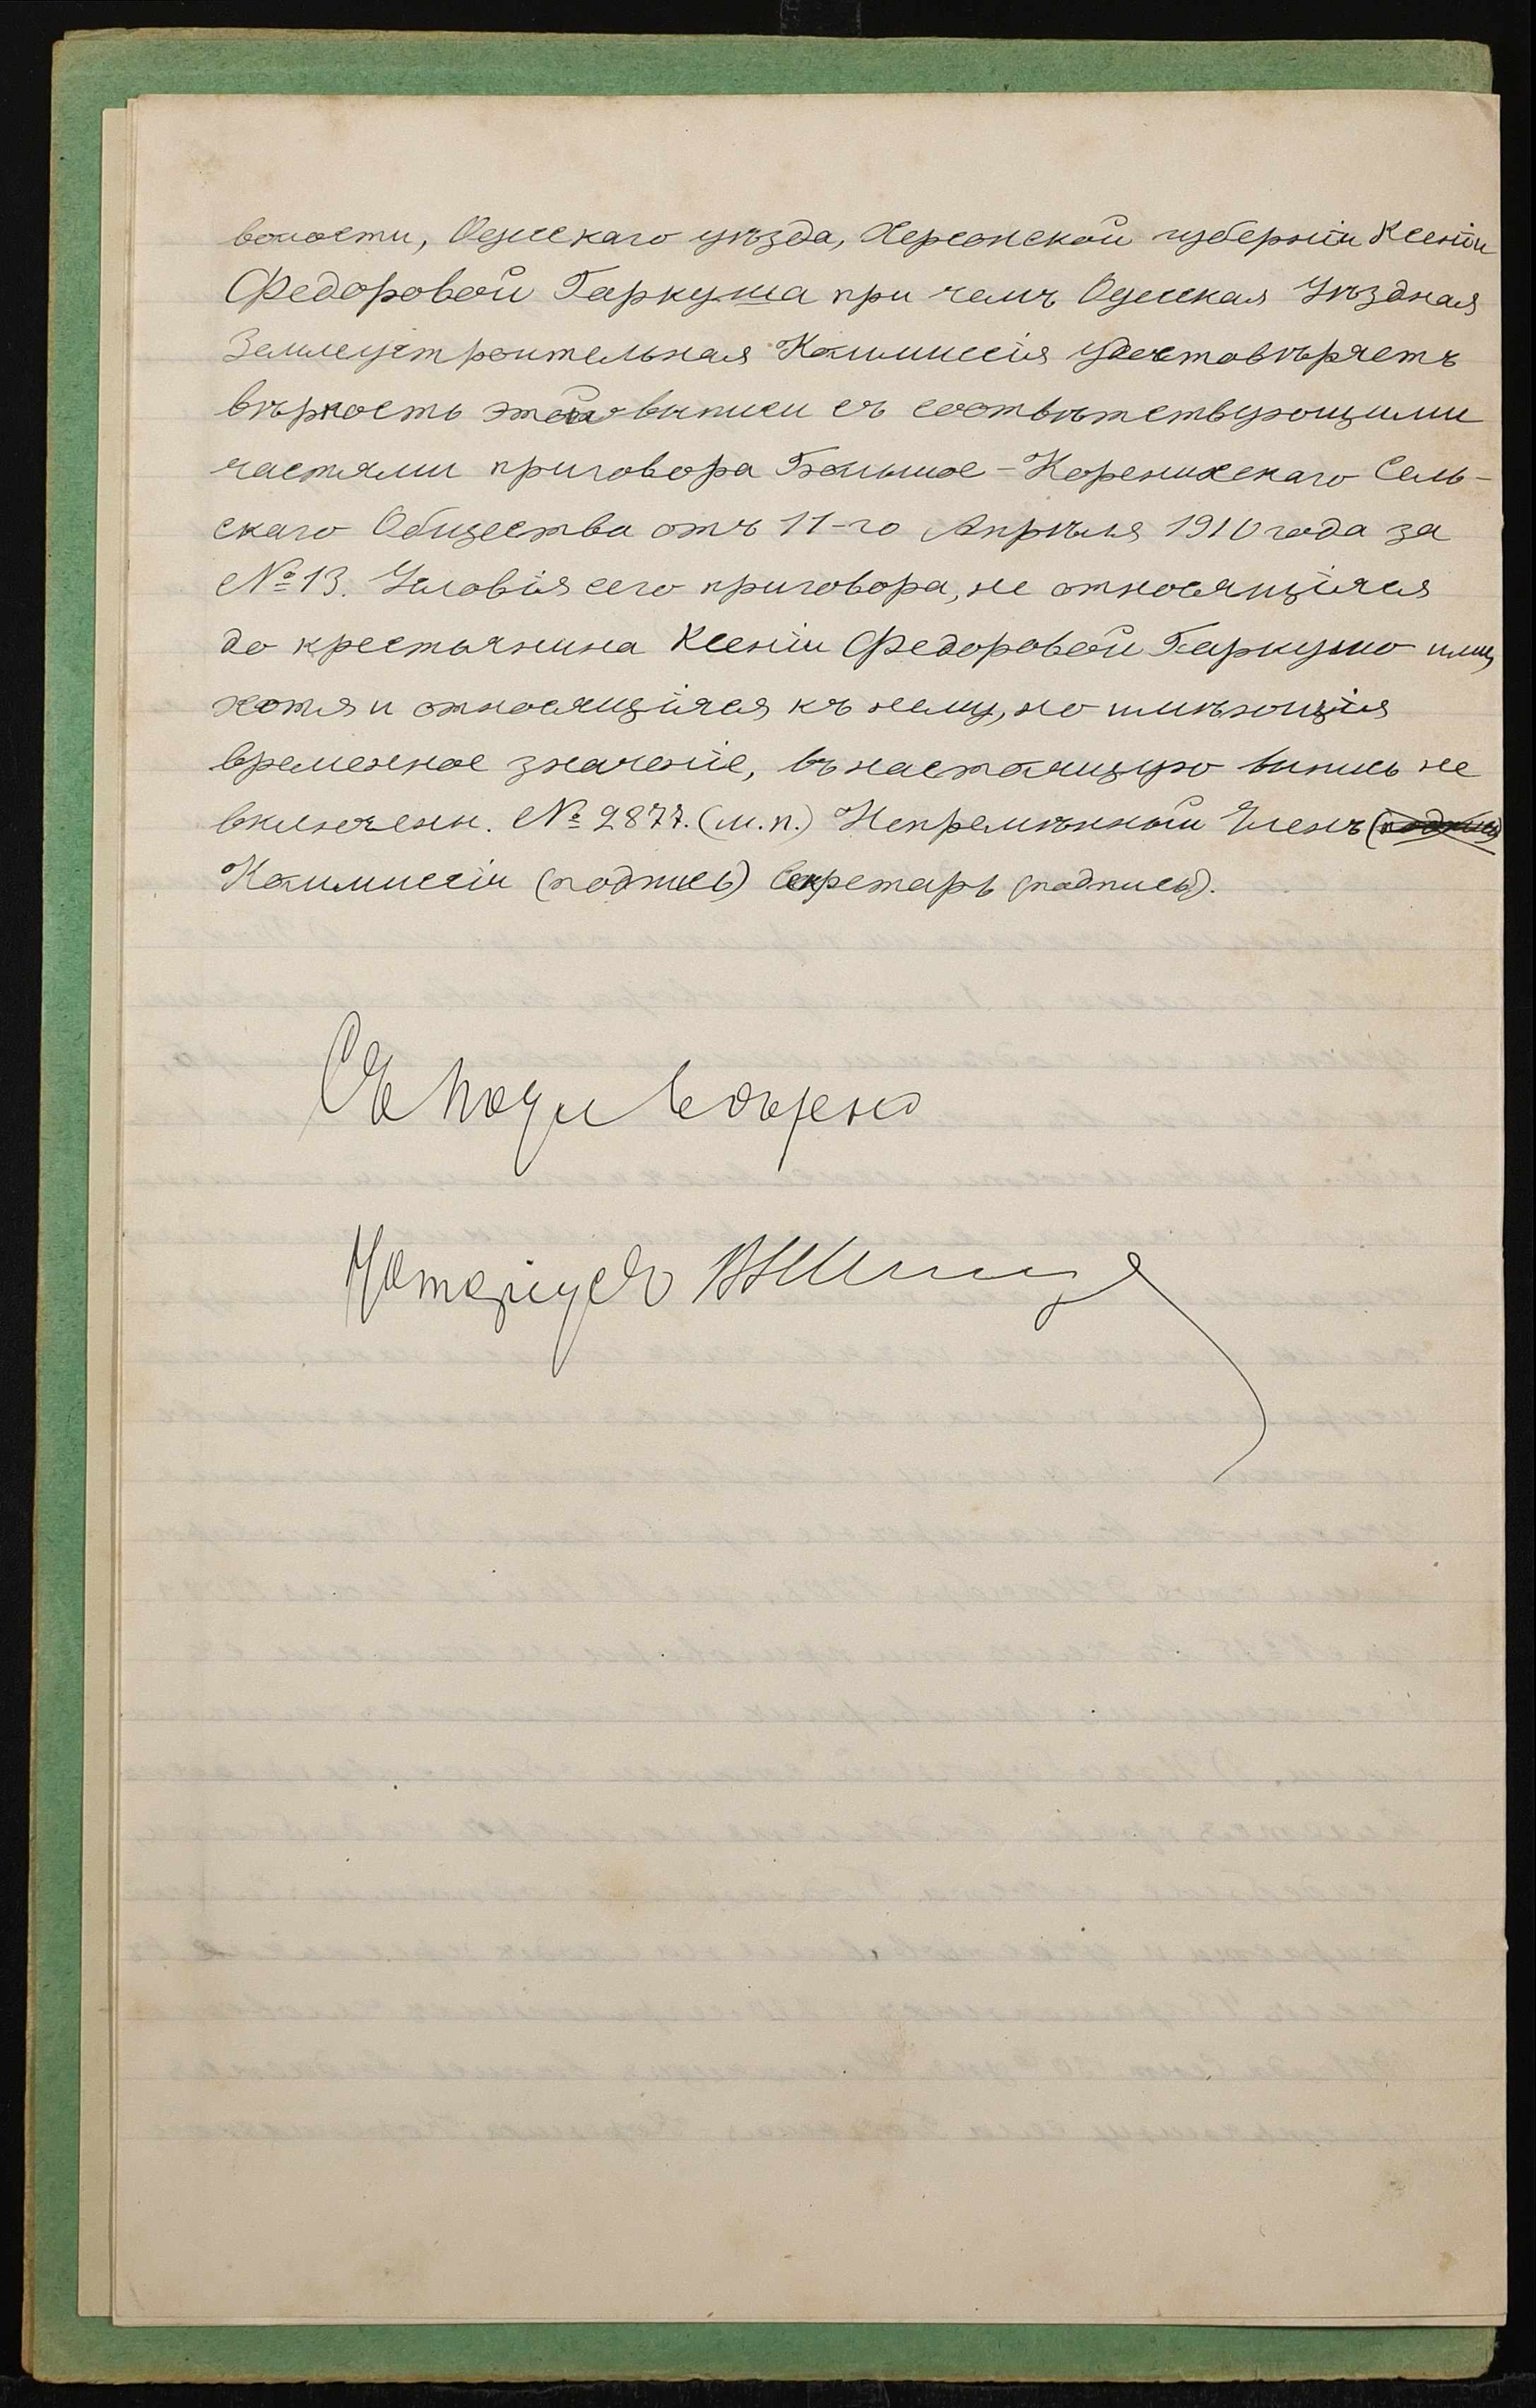 волости, Одесскаго уѣзда, Херсонской губерніи Ксеніи
Федоровой Гаркуша при чемъ Одесская Уѣздная
Землеустроительная Коммиссія удостовѣряетъ
вѣрность этой выписи съ соотвѣтствующими
частями приговора Больше-Коренихскаго Сель-
скаго Общества отъ 11-го Апрѣля 1910 года за
№ 13. Условія сего приговора, не относящіяся
до крестьянина Ксеніи Федоровой Гаркушо или,
хотя и относящіяся къ нему, но имѣющія
временное значеніе, въ настоящую выпись не
включены. № 2877. (м.п.) Непремѣнный Членъ (подпись)
Коммиссіи (подпись) Секретарь (подпись).
Съ подл
Нотаріусъ